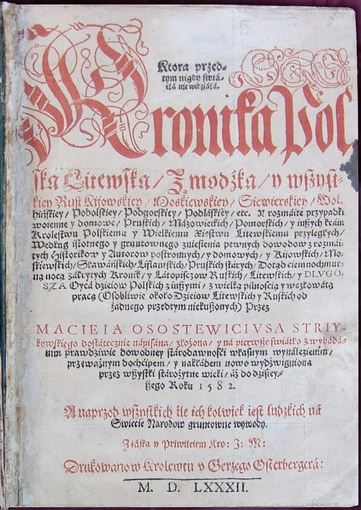 Ktora przed-
tym nigdy świá-
tłá nie widziáłá.
Kronika Pol
ska Litewska / Zmodźka / y wszyst-
kiey Rusi Kijowskiey / Moskiewskiey / Siewierskiey / Wol-
hińskiey / Podolskiey / Podgorskiey / Podláskiey / etc. Y rozmáite przypadki
woienne y domowe / Pruskich / Mázowieckich / Pomorskich / y inszych kráin
Krolestwu Polskiemu y Wielkiemu Xięstwu Litewskiemu przyległych /
Według istotnego y gruntownego zniesienia pewnych dowodow z rozmái-
tych Historikow y Autorow postronnych / y domowych / y Kijowskich / Mo-
skiewskich / Sławáńskich / Liflanskich / Pruskich stárych / Dotąd ciemnochmur-
ną nocą zákrytych Kronik / y Latopiszcow Ruskich / Litewskich / y DLVGO-
SZA Oycá dzieiow Polskich z inszymi / z wielką pilnością y węzłowátą
pracą (Osobliwie około Dzieiow Litewskich y Ruskich od
żadnego przedtym niekuszonych) Przez
MACIEIA OSOSTEWICIVSA STRIY-
kowskiego dostátecznie nápisána / złożona / y ná pierwsze świátło z wybádá-
nim prawdźiwie dowodney stárodawności własnym wynáleźienim /
przeważnym dochćipem / y nakłádem nowo wydźwigniona
przez wszystki stárożytne wieki / áż do dźisiey-
szego Roku 1582.
A naprzod wszystkich ile ich kolwiek iest ludzkich ná
Świecie Narodow gruntowne wywody.
Z łáską y Priwileiem Kro: J: M:
Drukowano w Krolewcu v Gerzego Osterbergerá:
M. D. LXXXII.